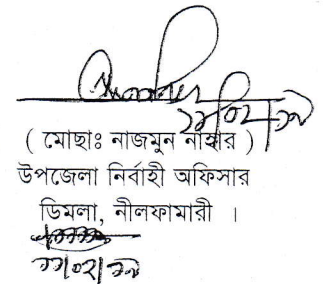 ( মোছাঃ নাজমুন নাহার )
উপজেলা নির্বাহী অফিসার
ডিমলা, নীলফামারী ।